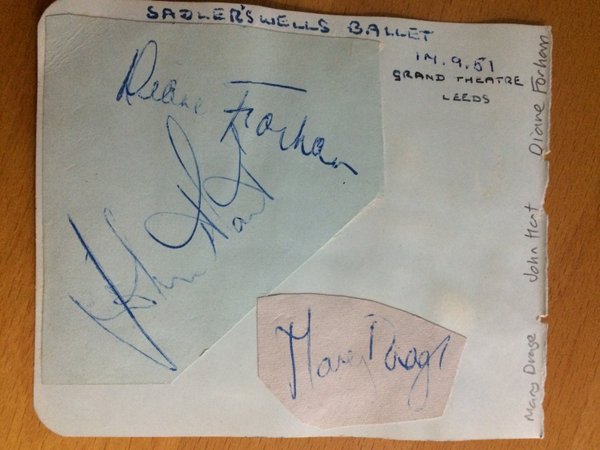 SADLER'S WELLS BALLET
14.9.51
GRAND THEATRE
LEEDS
Diane Forhan
John Hart
Mary Drage
Mary Drage. John Hart Diane Forhan